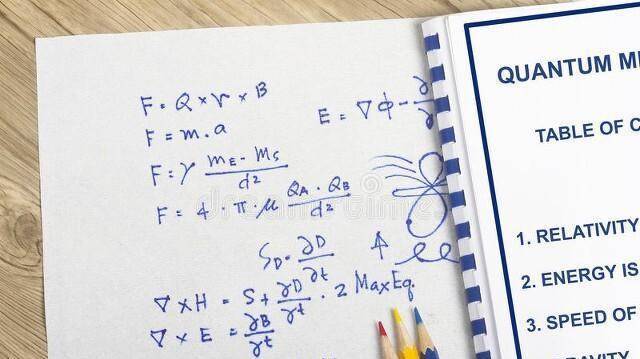 F = Q × v × B
F = m . a
F = γ mE - Ms / d²
F = 4 . π . μ QA . QB / d²
E = ∇ϕ - ∂ / ∂
SD = ∂D / ∂t
∇ × H = S + ∂D / ∂t . 2 Max Eq.
∇ × E = ∂B / ∂t
QUANTUM M
TABLE OF C
1. RELATIVITY
2. ENERGY IS
3. SPEED OF
dreamstime